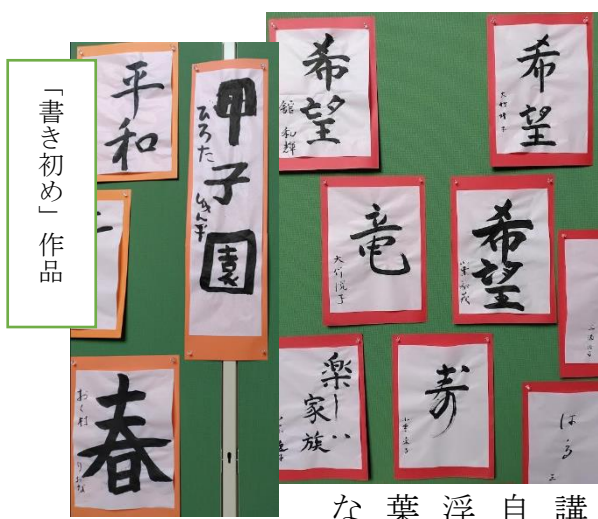 「書き初め」作品
平和
甲子園
ひろた
春
希望
希望
竜
希望
楽しい
家族
寿
はる
講
自
浮
葉
な